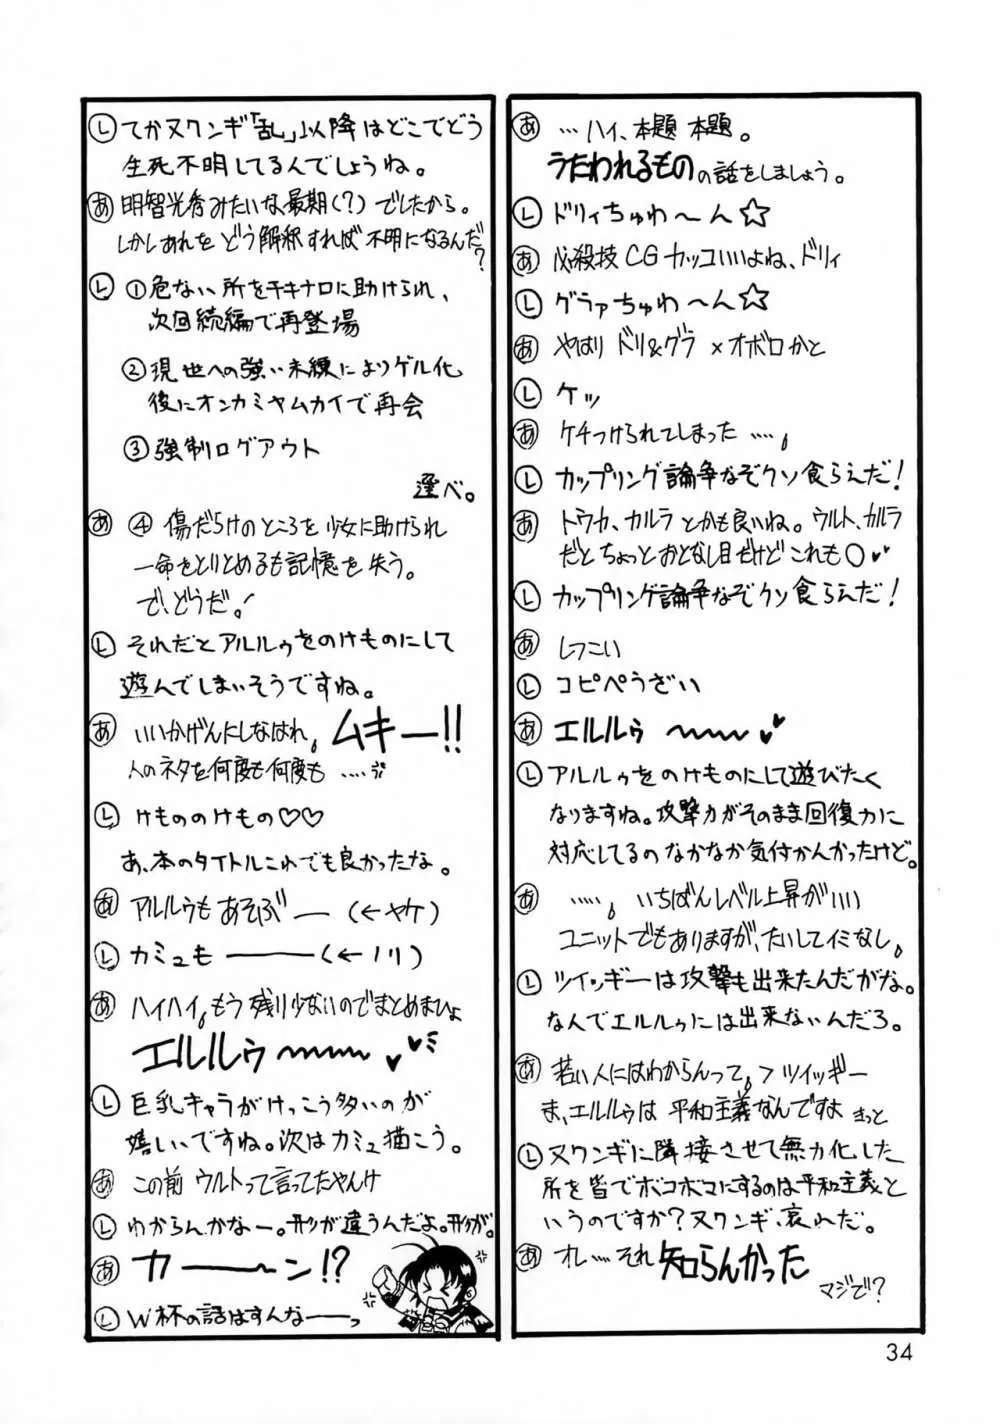 あ …ハイ、本題 本題。
うたわれるものの話をしましょう。
L ドリィちゅわ〜ん☆
あ 必殺技CGカッコいいよね、ドリィ
L グラァちゅわ〜ん☆
あ やはり ドリ&グラ×オボロかと
L ケッ
あ ケチつけられてしまった……。
L カップリング論争なぞクソ食らえだ!
あ トウカ、カルラとかも良いね。ウルト、カルラ
だと ちょっとおとなし目だけどこれも〇♥♥
L カップリング論争なぞクソ食らえだ!
あ しつこい
L コピペうざい
あ エルルゥ 〜〜〜♥
L アルルゥをのけものにして遊びたく
なりますね。攻撃力がそのまま回復力に
対応してるのなかなか気付かんかったけど。
あ ……。いちばんレベル上昇がいい
ユニットでもありますが、たいしてイミなし。
L ツイッギーは攻撃も出来たんだがな。
なんでエルルゥには出来ないんだろ。
あ 若い人にはわからんって。>ツイッギー
ま、エルルゥは 平和主義なんですよ きっと
L ヌワンギに隣接させて無力化した
所を皆でボコボコにするのは平和主義と
いうのですか?ヌワンギ、哀れだ。
あ オレ……それ知らんかった
マジで?
L てかヌワンギ「乱」以降はどこでどう
生死不明してるんでしょうね。
あ 明智光秀みたいな最期(?)でしたから。
しかしあれを どう解釈すれば 不明になるんだ?
L ①危ない所をチキナロに助けられ、
次回続編で再登場
②現世への強い未練によりゲル化
後にオンカミヤムカイで再会
③強制ログアウト
選べ。
あ ④ 傷だらけのところを少女に助けられ
一命をとりとめるも記憶を失う。
で、どうだ!
L それだとアルルゥをのけものにして
遊んでしまいそうですね。
あ いいかげんにしなはれ。ムキー!!
人のネタを何度も何度も……
L けもののけもの♡♡
あ、本のタイトルこれでも良かったな。
あ アルルゥもあそぶ――(←ヤケ)
L カミュも――――(←ノリ)
あ ハイハイ。もう残り少ないのでまとめまひょ
エルルゥ〜〜〜♥♥
L 巨乳キャラがけっこう多いのが
嬉しいですね。次はカミュ描こう。
あ この前 ウルトって言ってたやんけ
L わからんかなー。形が違うんだよ。形が。
あ カ――〜ン!?
L W杯の話はすんな――っ
34